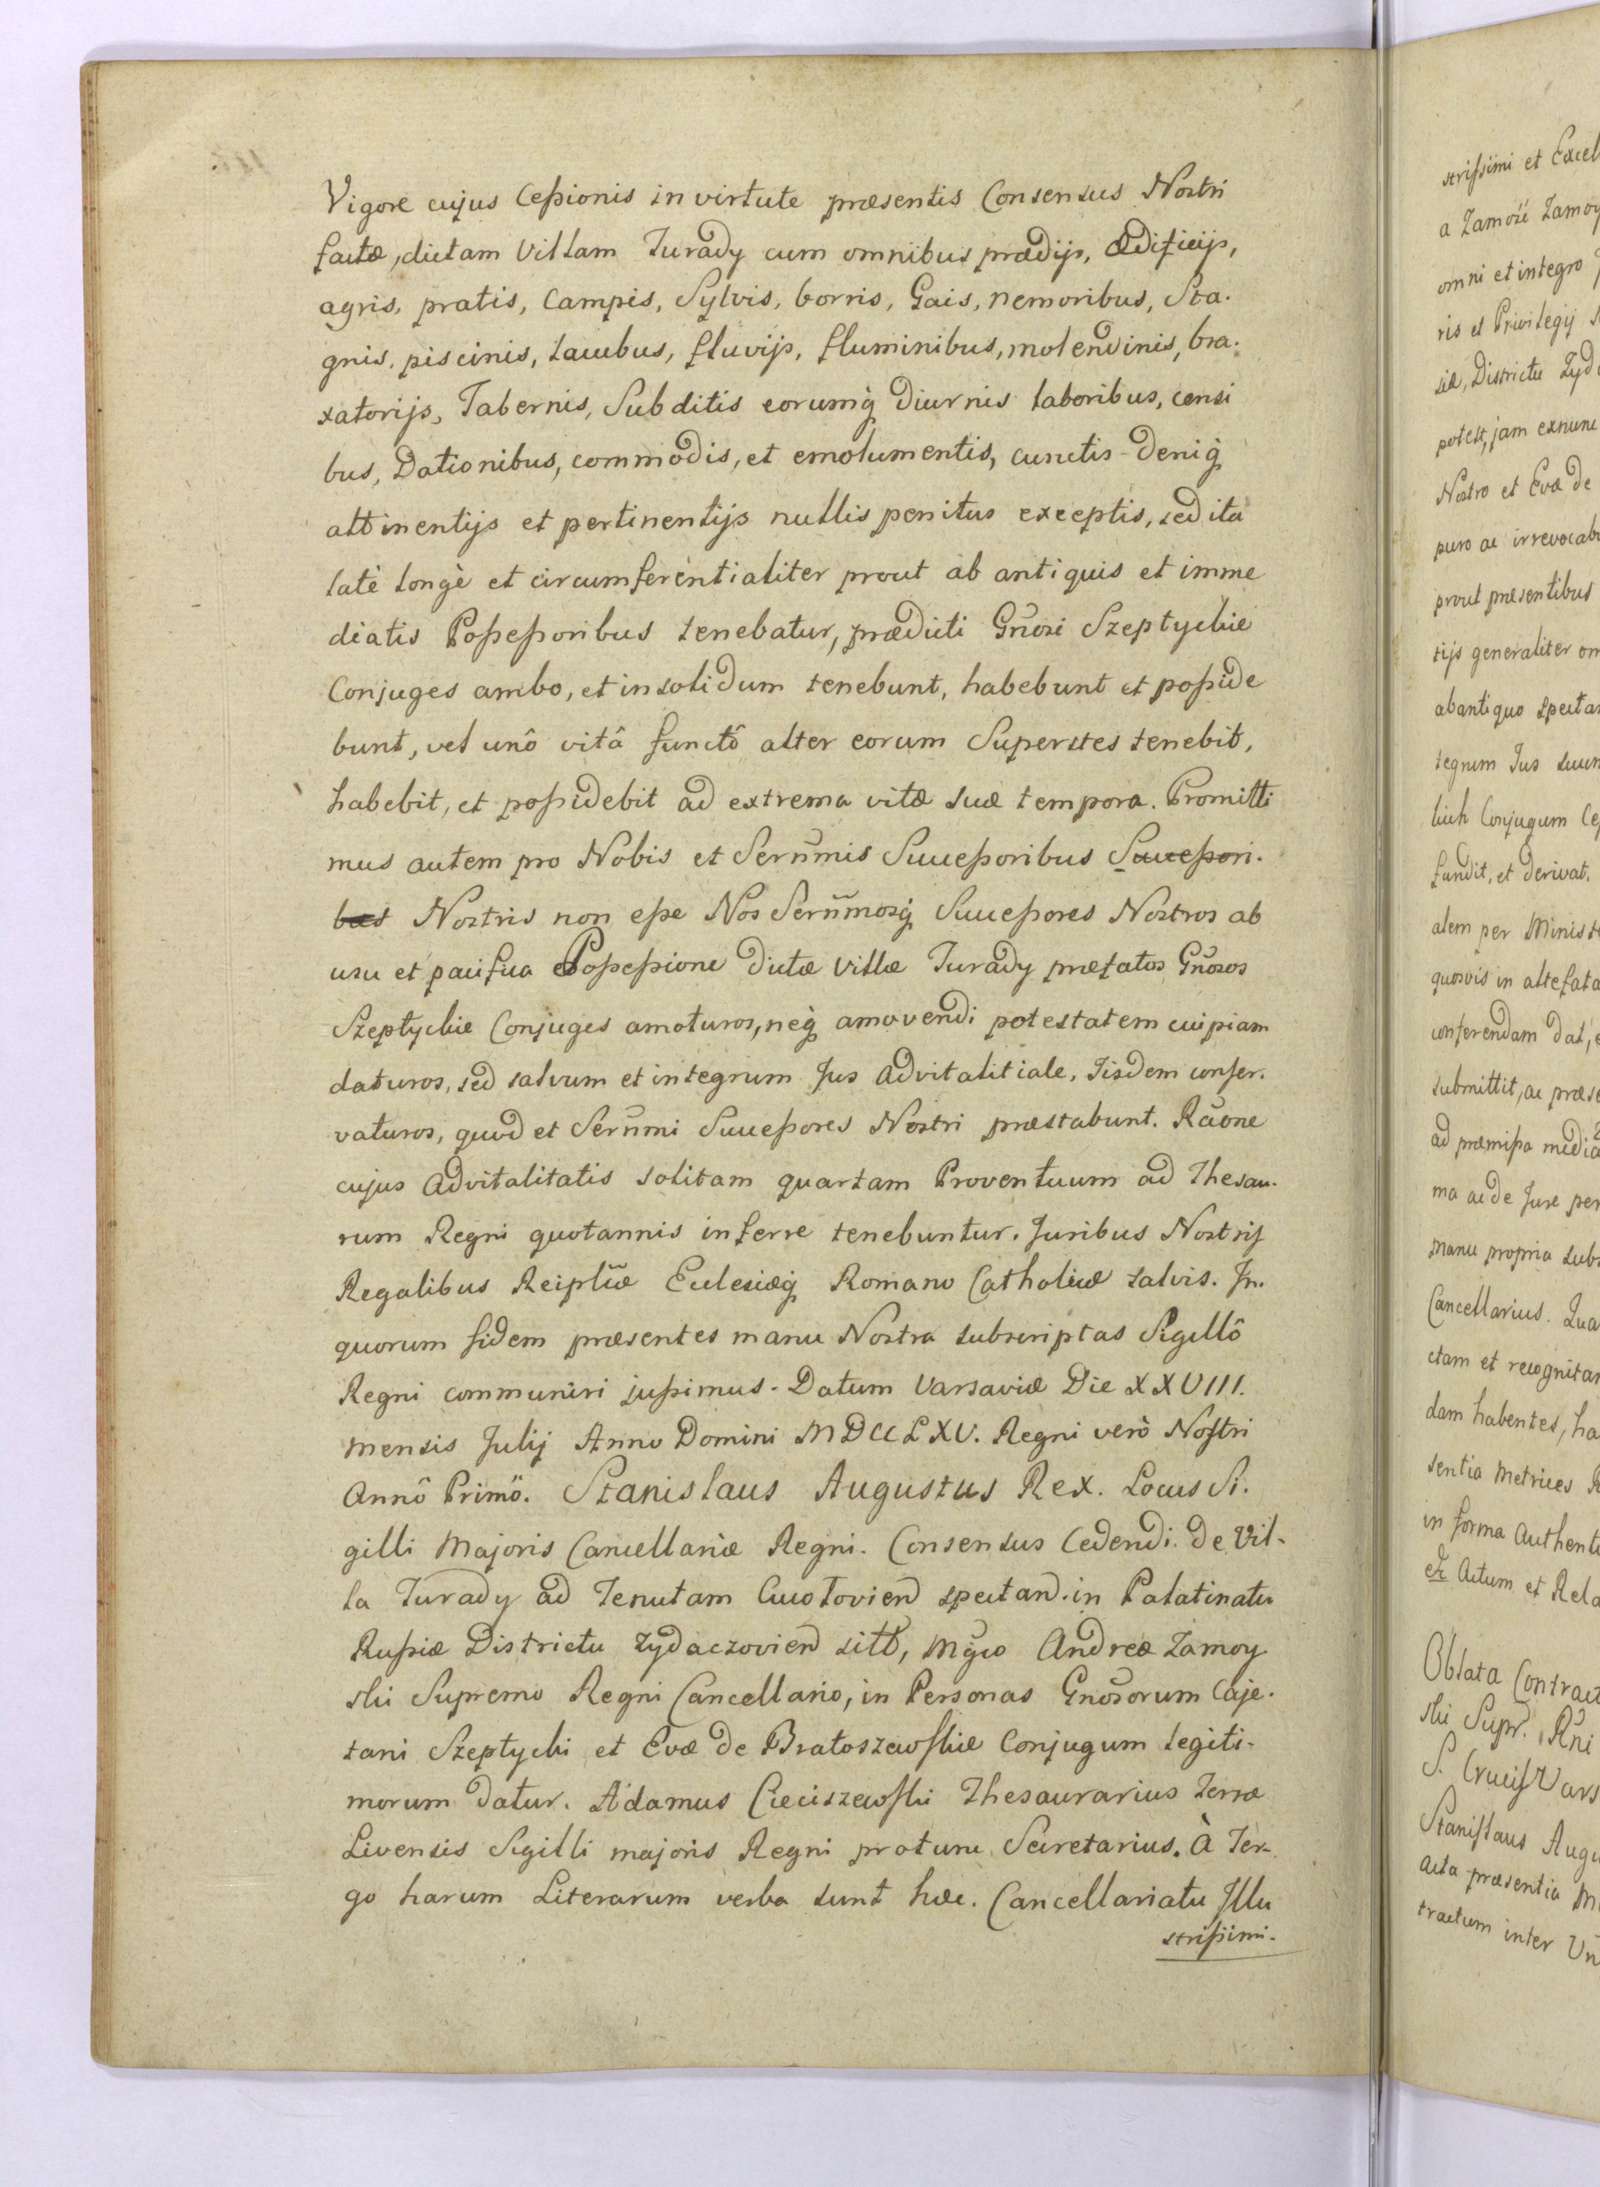 Vigore cujus Cessionis in virtute præsentis Consensus Nostri
factæ, dictam Villam Turady cum omnibus prædijs, Ædificijs,
agris, pratis, Campis, Sylvis, borris, Gais, nemoribus, Sta-
gnis, piscinis, lacubus, fluvijs, fluminibus, molendinis, bra-
xatorijs, Tabernis, Subditis eorumq; diurnis laboribus, censi
bus, Dationibus, commodis, et emolumentis, cunctis denique
attinentijs et pertinentijs nullis penitus exceptis, sed ita
latè longè et circumferentialiter prout ab antiquis et imme
diatis Possessoribus tenebatur, prædicti Gñosi Szeptyckie
Conjuges ambo, et in solidum tenebunt, habebunt et posside
bunt, vel unô vitâ functô alter eorum Superstes tenebit,
habebit, et possidebit ad extrema vitæ suæ tempora. Promitti
mus autem pro Nobis et Serñmis Successoribus Successori-
bus Nostris non esse Nos Serñmosq; Successores Nostros ab
usu et pacifica Possessione dictæ Villæ Turady præfatos Gñosos
Szeptyckie Conjuges amoturos, neq; amovendi potestatem cuipiam
daturos, sed salvum et integrum Jus Advitalitiale, Iisdem conser-
vaturos, quod et Serñmi Successores Nostri præstabunt. Rãone
cujus Advitalitatis solitam quartam Proventuum ad Thesau-
rum Regni quotannis inferre tenebuntur. Juribus Nostris
Regalibus Reiplicæ Ecclesiæq; Romano Catholicæ salvis. In
quorum fidem præsentes manu Nostra subscriptas Sigillô
Regni communiri jussimus. Datum Varsaviæ Die XXVIII.
mensis Julij Anno Domini MDCCLXV. Regni verò Nostri
Annô Primô. Stanislaus Augustus Rex. Locus Si-
gilli Majoris Cancellariæ Regni. Consensus Cedendi de Vil-
la Turady ad Tenutam Cucułovien spectand. in Palatinatu
Russiæ Districtu Zydaczovien sitt, Mgco Andreæ Zamoy
ski Supremo Regni Cancellario, in Personas Gnosorum Caje-
tani Szeptycki et Evæ de Bratoszewskie Conjugum legiti-
morum datur. Adamus Cieciszewski Thesaurarius Terræ
Livensis Sigilli majoris Regni protunc Secretarius. À Ter-
go harum Literarum verba sunt hæc. Cancellariatu Illu
strissimi.
strissimi et Excel
a Zamość Zamoy
omni et integro
ris et Privilegij
siæ, Districtu Zyd
potest, jam exnunc
Nostro et Evæ de
puro ac irrevocab
prout præsentibus
tijs generaliter om
ab antiquo specta
tegrum Jus suum
kich Conjugum Ce
fundit, et derivat,
alem per Minist
quosvis in altefata
conferendam dat,
submittit, ac præs
ad præmissa media
ma ac de Jure per
manu propria subs
Cancellarius. Qua
ctam et recognitam
dam habentes, ha
sentia Metrices R
in forma Authenti
Actum et Rela
Oblata Contract
ski Supr. Rñi
S. Crucis Vars
Stanislaus Augu
Acta præsentia M
tractum inter